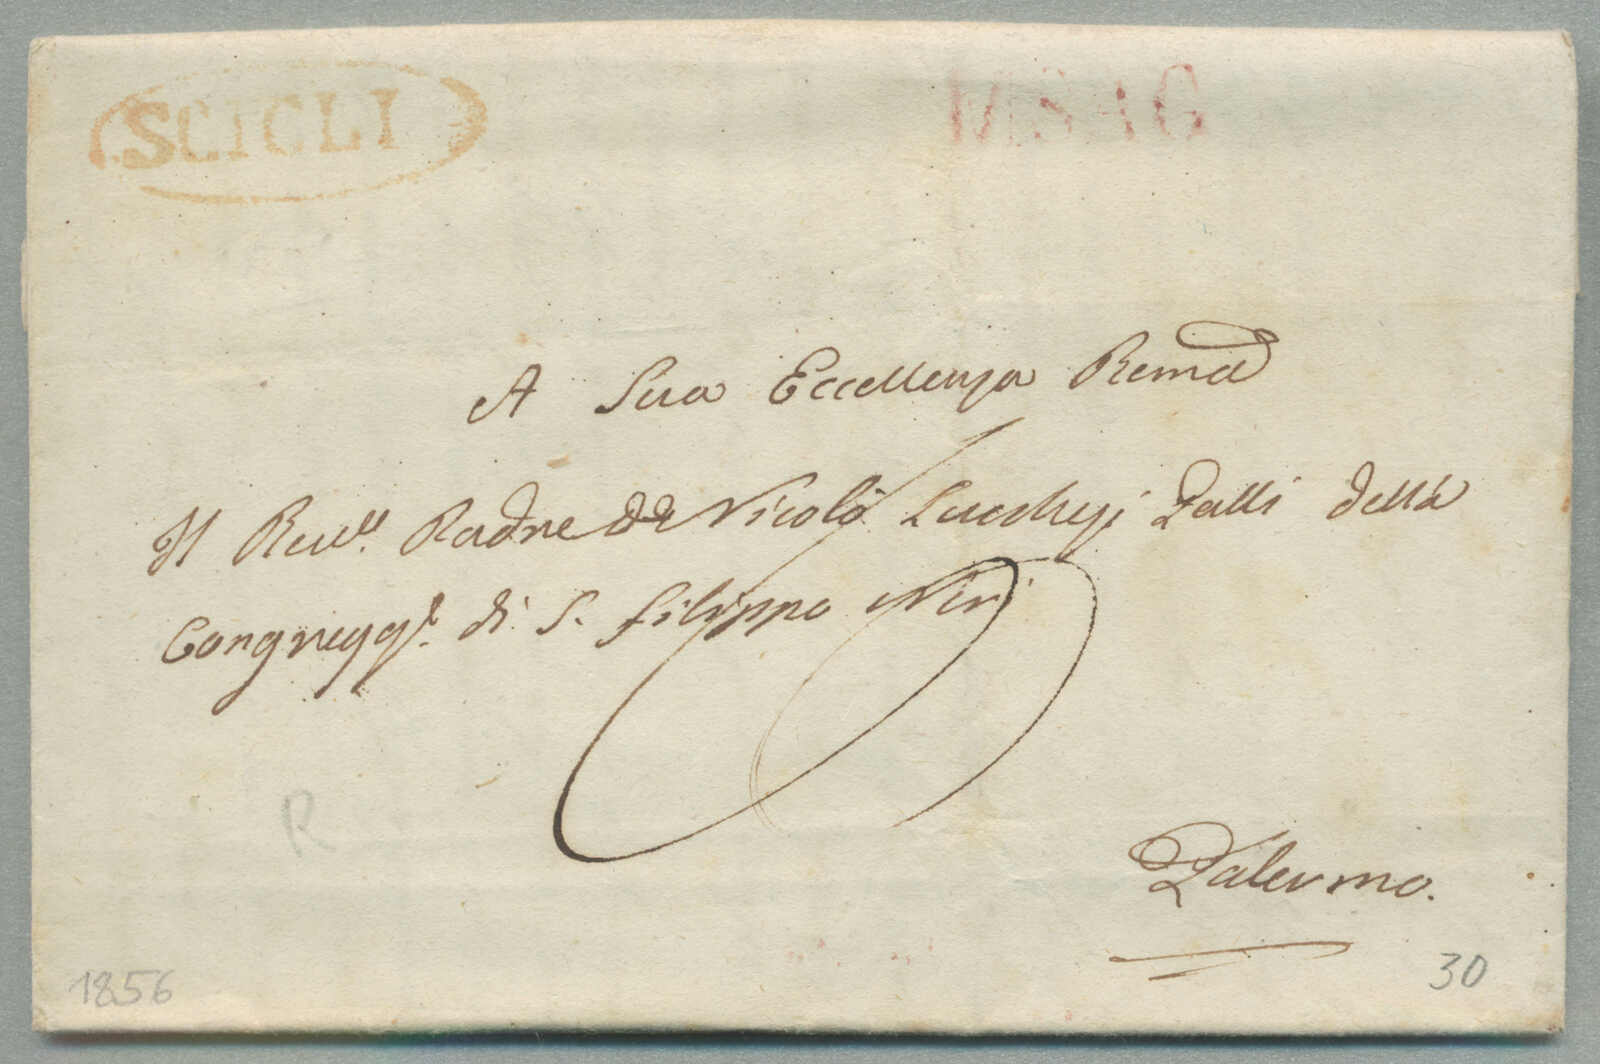 SCICLI
A Sua Eccellenza Rema
Il Revll. Padre Nicolò Lucchesi Palli della
Congregge. di S. Filippo Neri
Palermo.
R
1856
30